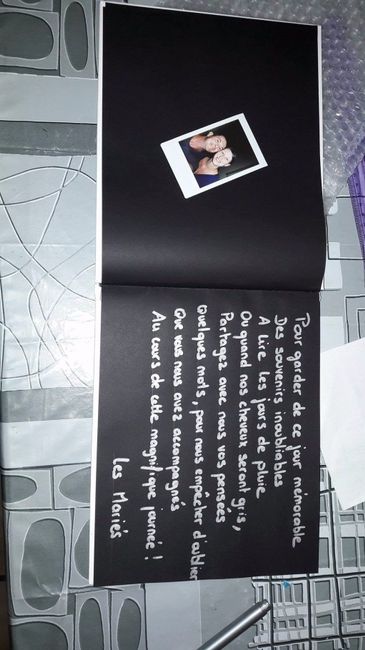 Pour garder de ce jour mémorable
Des souvenirs inoubliables
A lire les jours de pluie
Ou quand nos cheveux seront gris,
Partagez avec nous vos pensées
Quelques mots, pour nous empêcher d'oublier
Que vous nous avez accompagnés
Au cours de cette magnifique journée !
Les Mariés